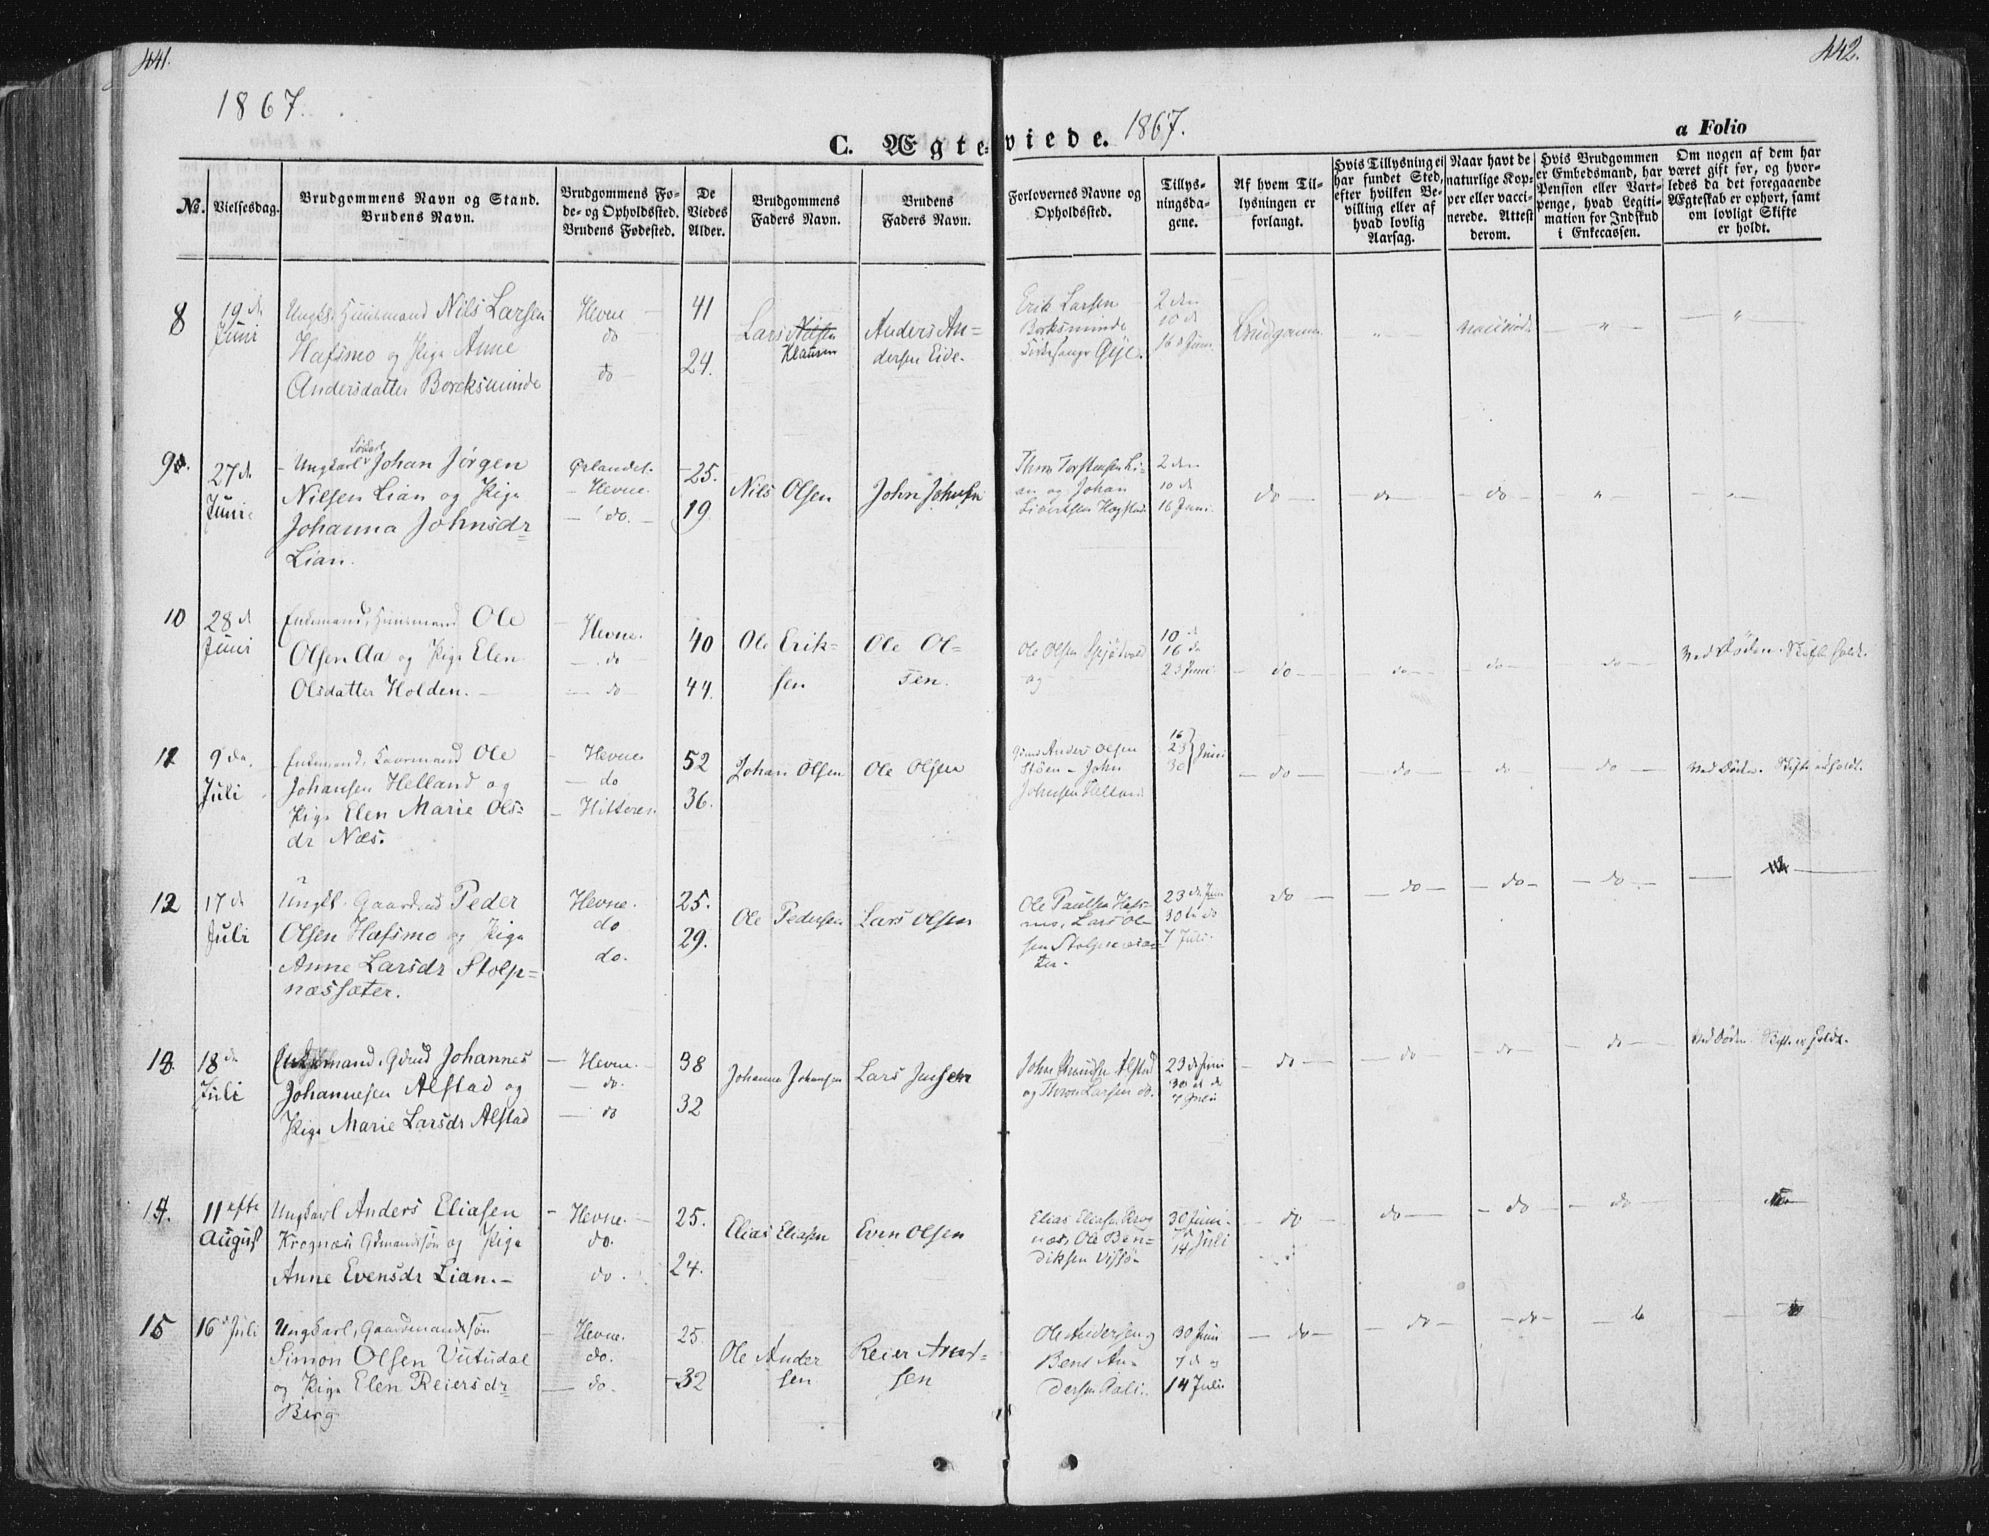 441.
442.
1867.
1867.
C. Ægteviede.
a Folio
No.
Vielsesdag.
Brudgommens Navn og Stand.
Brudens Navn.
Brudgommens Fø-
de- og Opholdssted.
Brudens Fødested.
De
Viedes
Alder.
Brudgommens
Faders Navn.
Brudens
Faders Navn.
Forlovernes Navne og
Opholdssted.
Tillys-
ningsda-
gene.
Af hvem Til-
lysningen er
forlangt.
Hvis Tillysning ei
har fundet Sted,
efter hvilken Be-
villing eller af
hvad lovlig
Aarsag.
Naar havt de
naturlige Kop-
per eller vacci-
nerede. Attest
derom.
Hvis Brudgommen
er Embedsmand, har
Pension eller Vart-
penge, hvad Legiti-
mation for Indskud
i Enkecassen.
Om nogen af dem har
været gift før, og hvor-
ledes da det foregaaende
Ægteskab er ophørt, samt
om lovligt Skifte
er holdt.
8
19 d
Juni
Ungk. Huusmand Nils Larsen
Hafsmo og Pige Anne
Andersdatter Borcksminde
Hevne
do
do
41
24.
Lars Nilsen
Klausen
Anders An-
dersen Eide.
Erik Larsen
Borksminde
2 den
10 d
16 d Juni
Brudgommen
"
"
"
9.
27 d
Juni
Ungkarl Johan Jörgen
Nilsen Lian og Pige
Johanna Johnsdr
Lian.
Ørlandet.
Hevne.
do.
25.
19.
Nils Olsen
John Johnsen
Thron Torstensen Li-
an og Johan
Sivertsen Hogstad
2 den
10 d
16 Juni
do
do
do
"
"
10
28 d
Juni
Enkemand, Huusmand Ole
Olsen Aa og Pige Elen
Olsdatter Holden.
Hevne.
do
do
40
44.
Ole Erik-
sen
Ole Ol-
sen.
Ole Olsen
og
10 d
16 do
23 Juni
do
do
do
do
Ved Döden. Skifte holdt.
11
9 de.
Juli
Enkemand, Gaarmand Ole
Johansen Helland og
Pige Elen Marie Ols-
dr Næs.
Hevne
do
Hitteren.
52
36.
Johan Olsen
Ole Olsen
Anders Olsen
Stöen - John
Johnsen Helland
16
23
30
Juni
do
do
do
do
Ved Döden. Skifte er holdt.
12
17 d
Juli
Ungk. Gaardmd Peder
Olsen Hafsmo og Pige
Anne Larsdr Stolp-
næssæter.
Hevne.
do
do.
25.
29.
Ole Pedersen
Lars Olsen
Ole Paulsen Hafs-
mo, Lars Ol-
sen Stolpnessæ-
ter.
23 d Juni
30 te do
7 Juli.
do
do
do
do
13.
18 de
Juli
Enkemand. Gdmd Johannes
Johannesen Alstad og
Pige Marie Larsdr Alstad
Hevne.
do.
do
38
32
Johannes Johansen
Lars Jensen
John Alstad
og Thron Larsen do.
23 de Juni
30 te d
7 Juli
do
do
do
do
Ved Döden. Skifte er holdt.
14.
11 efte
August
Ungkarl Anders Eliasen
Krognæs Gdmandssön og Pige
Anne Evensdr Lian.
Hevne.
do.
do.
25.
24.
Elias Eliasen
Even Olsen
Elias Eliasen Krog
næs, Ole Ben-
diksen Vissö
30 Juni
7 d
14 Juli
do
do
do
do
15
16 d Juli
Ungkarl, Gaardmandssön
Simon Olsen Vutudal
og Pige Elen Reiersdr
Berg
Hevne.
do.
do.
25
32
Ole Ander
sen
Reier Arnt-
sen
Ole Andersen og
Bent An-
dersen Aali.
30 Juni
7 d
14 Juli
do
do
do